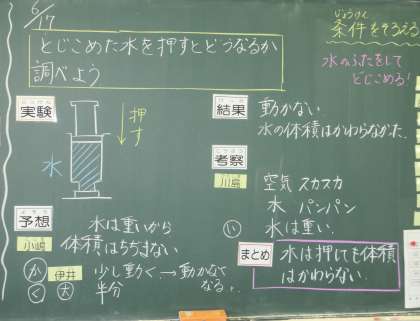 6/17
とじこめた水を押すとどうなるか
調べよう
じょうけん
条件をそろえる
水のふたをして
とじこめる!
実験
押す
水
結果
動かない
水の体積はかわらなかった.
考察
川島
空気 スカスカ
水 パンパン
い 水は重い.
予想
小嶋
水は重いから
体積はちぢまない
か 伊井 少し動く→動かなくなる.
く 大 半分
まとめ
水は押しても体積
はかわらない.